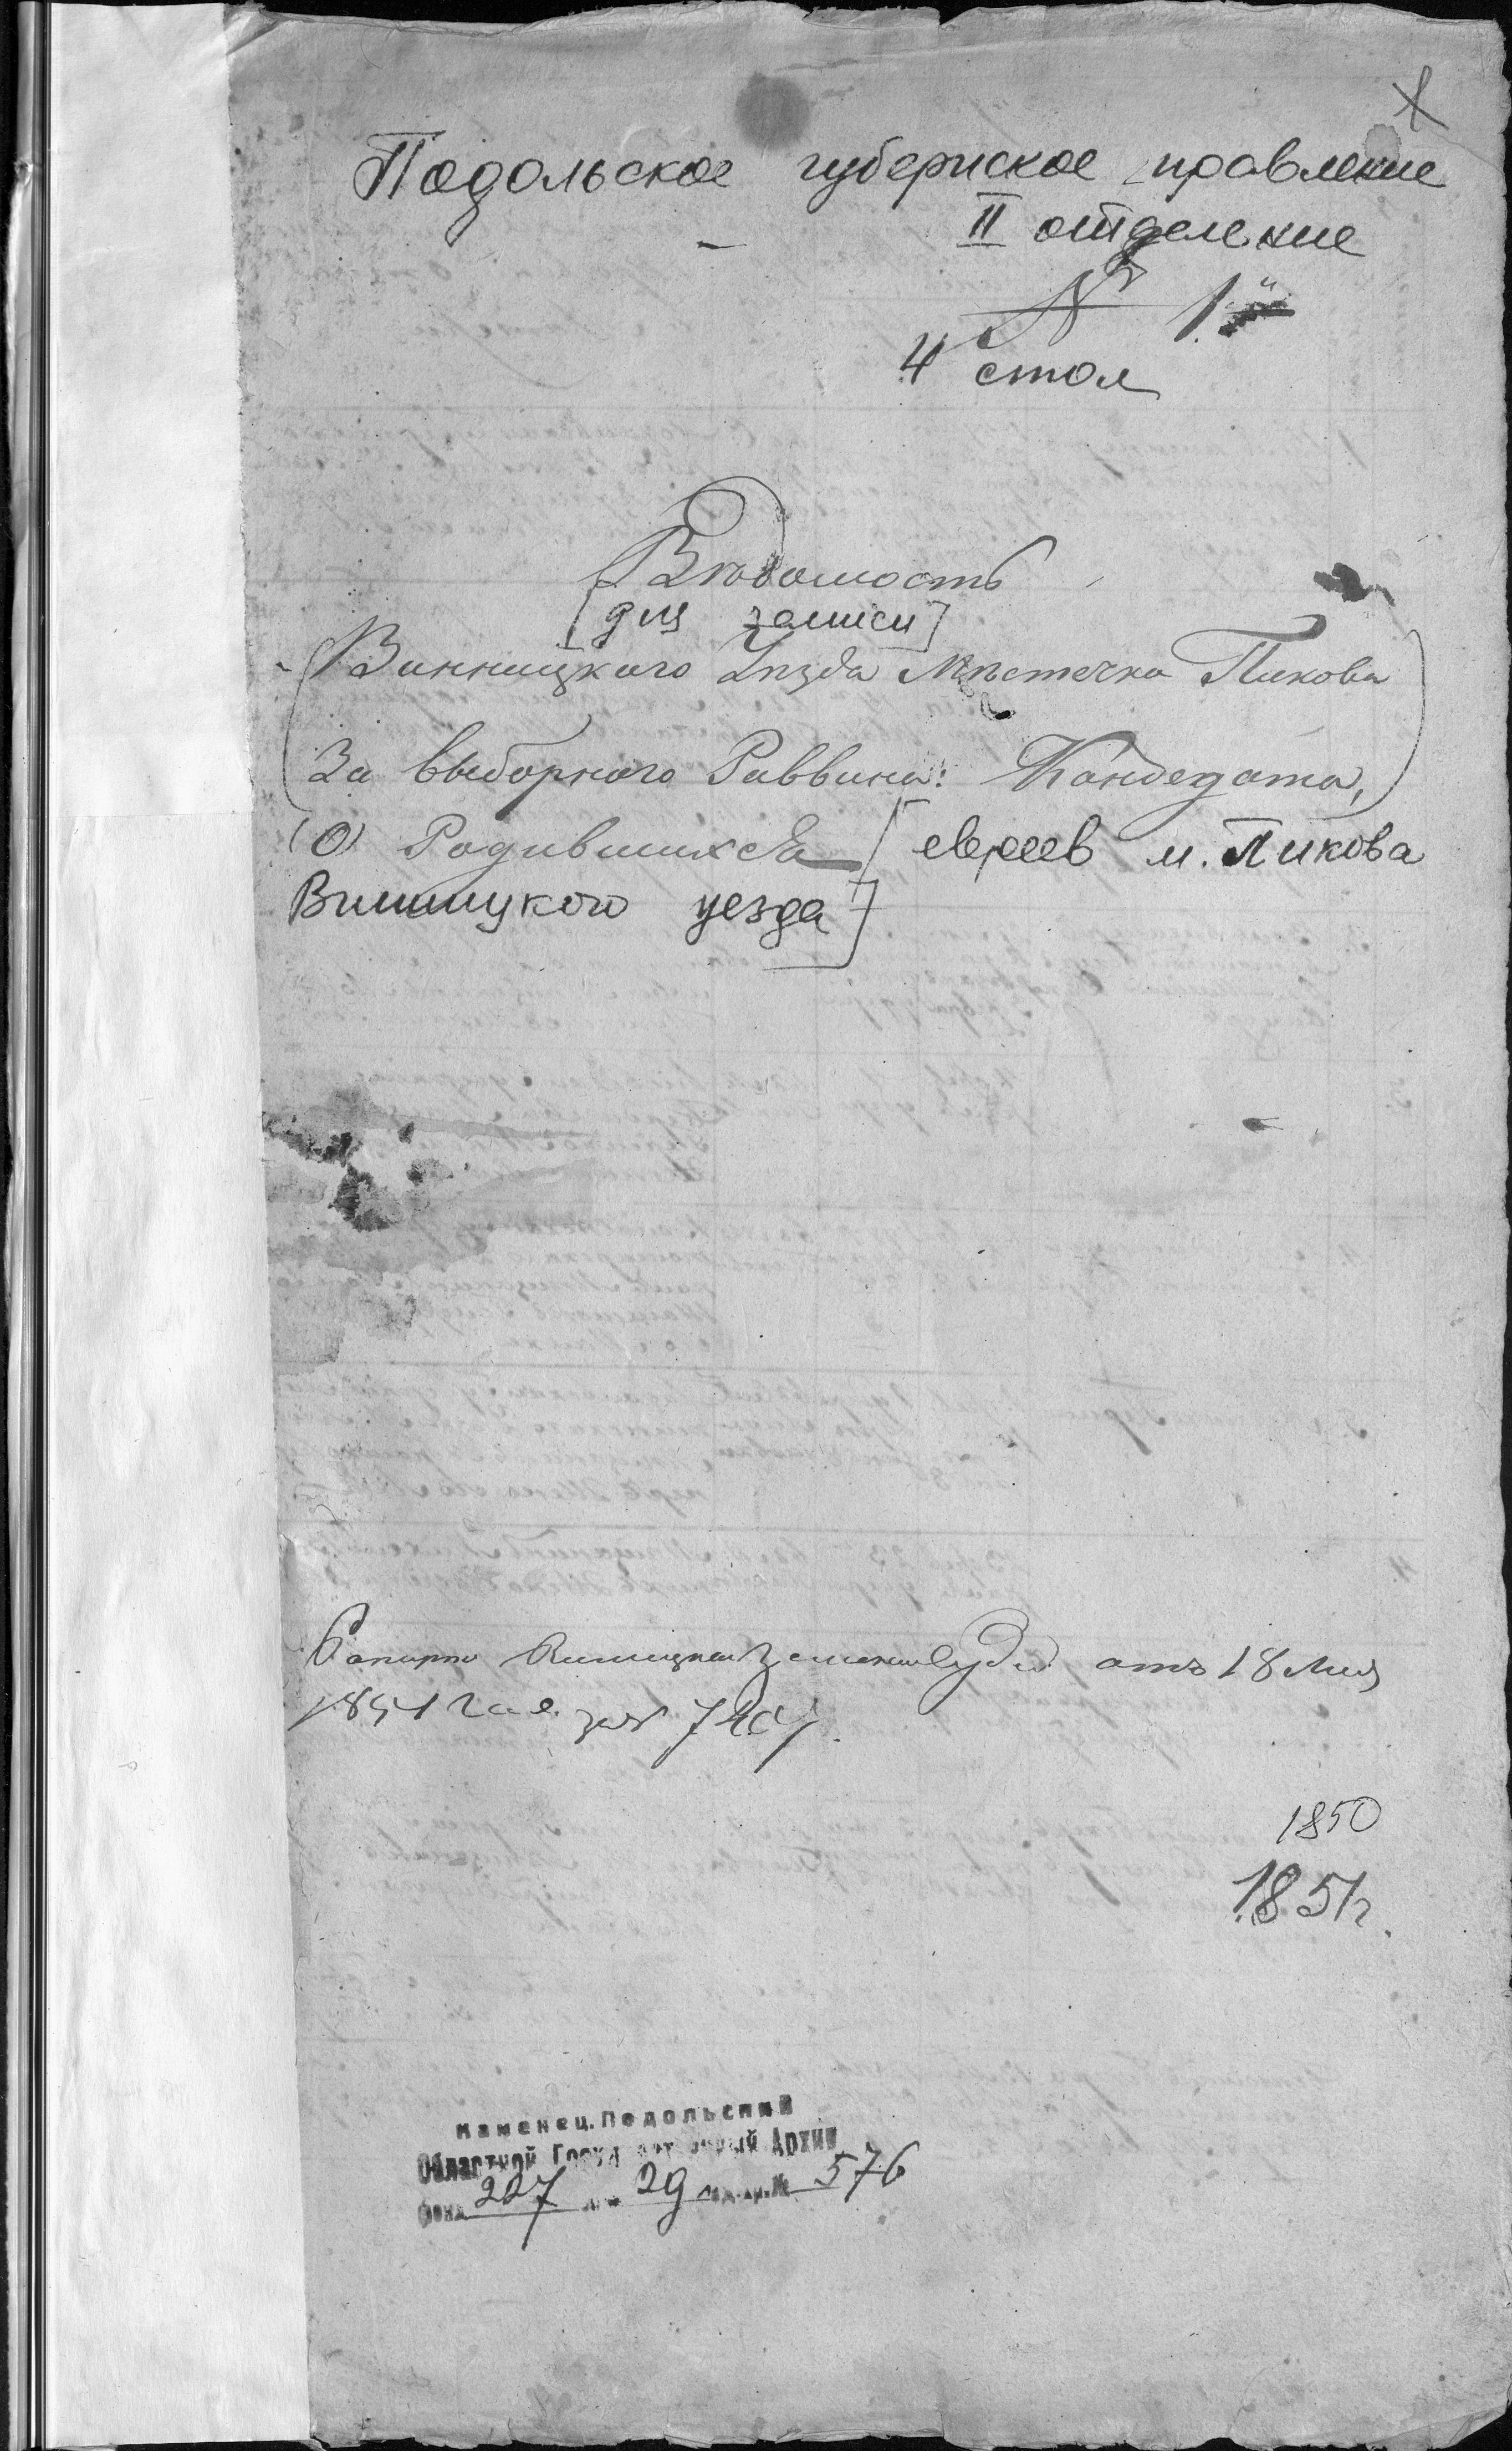 Подольское губернское правление
II отделение
№ 1й
4 стол
Вѣдомость
[для записи]
(Винницкого Уѣзда Мѣстечка Пикова
За выборного Раввина: Кандедата,)
(О) Родившихся [евреев м. Пикова
Винницкого уезда]
Рапорт Винницкаго Земскаго Суда отъ 18 Мая
1851 года за №
1850
1851г.
Каменец.Подольский
Областной Государственный Архив
Фонд 227 оп. 29 ед.хр.№ 576